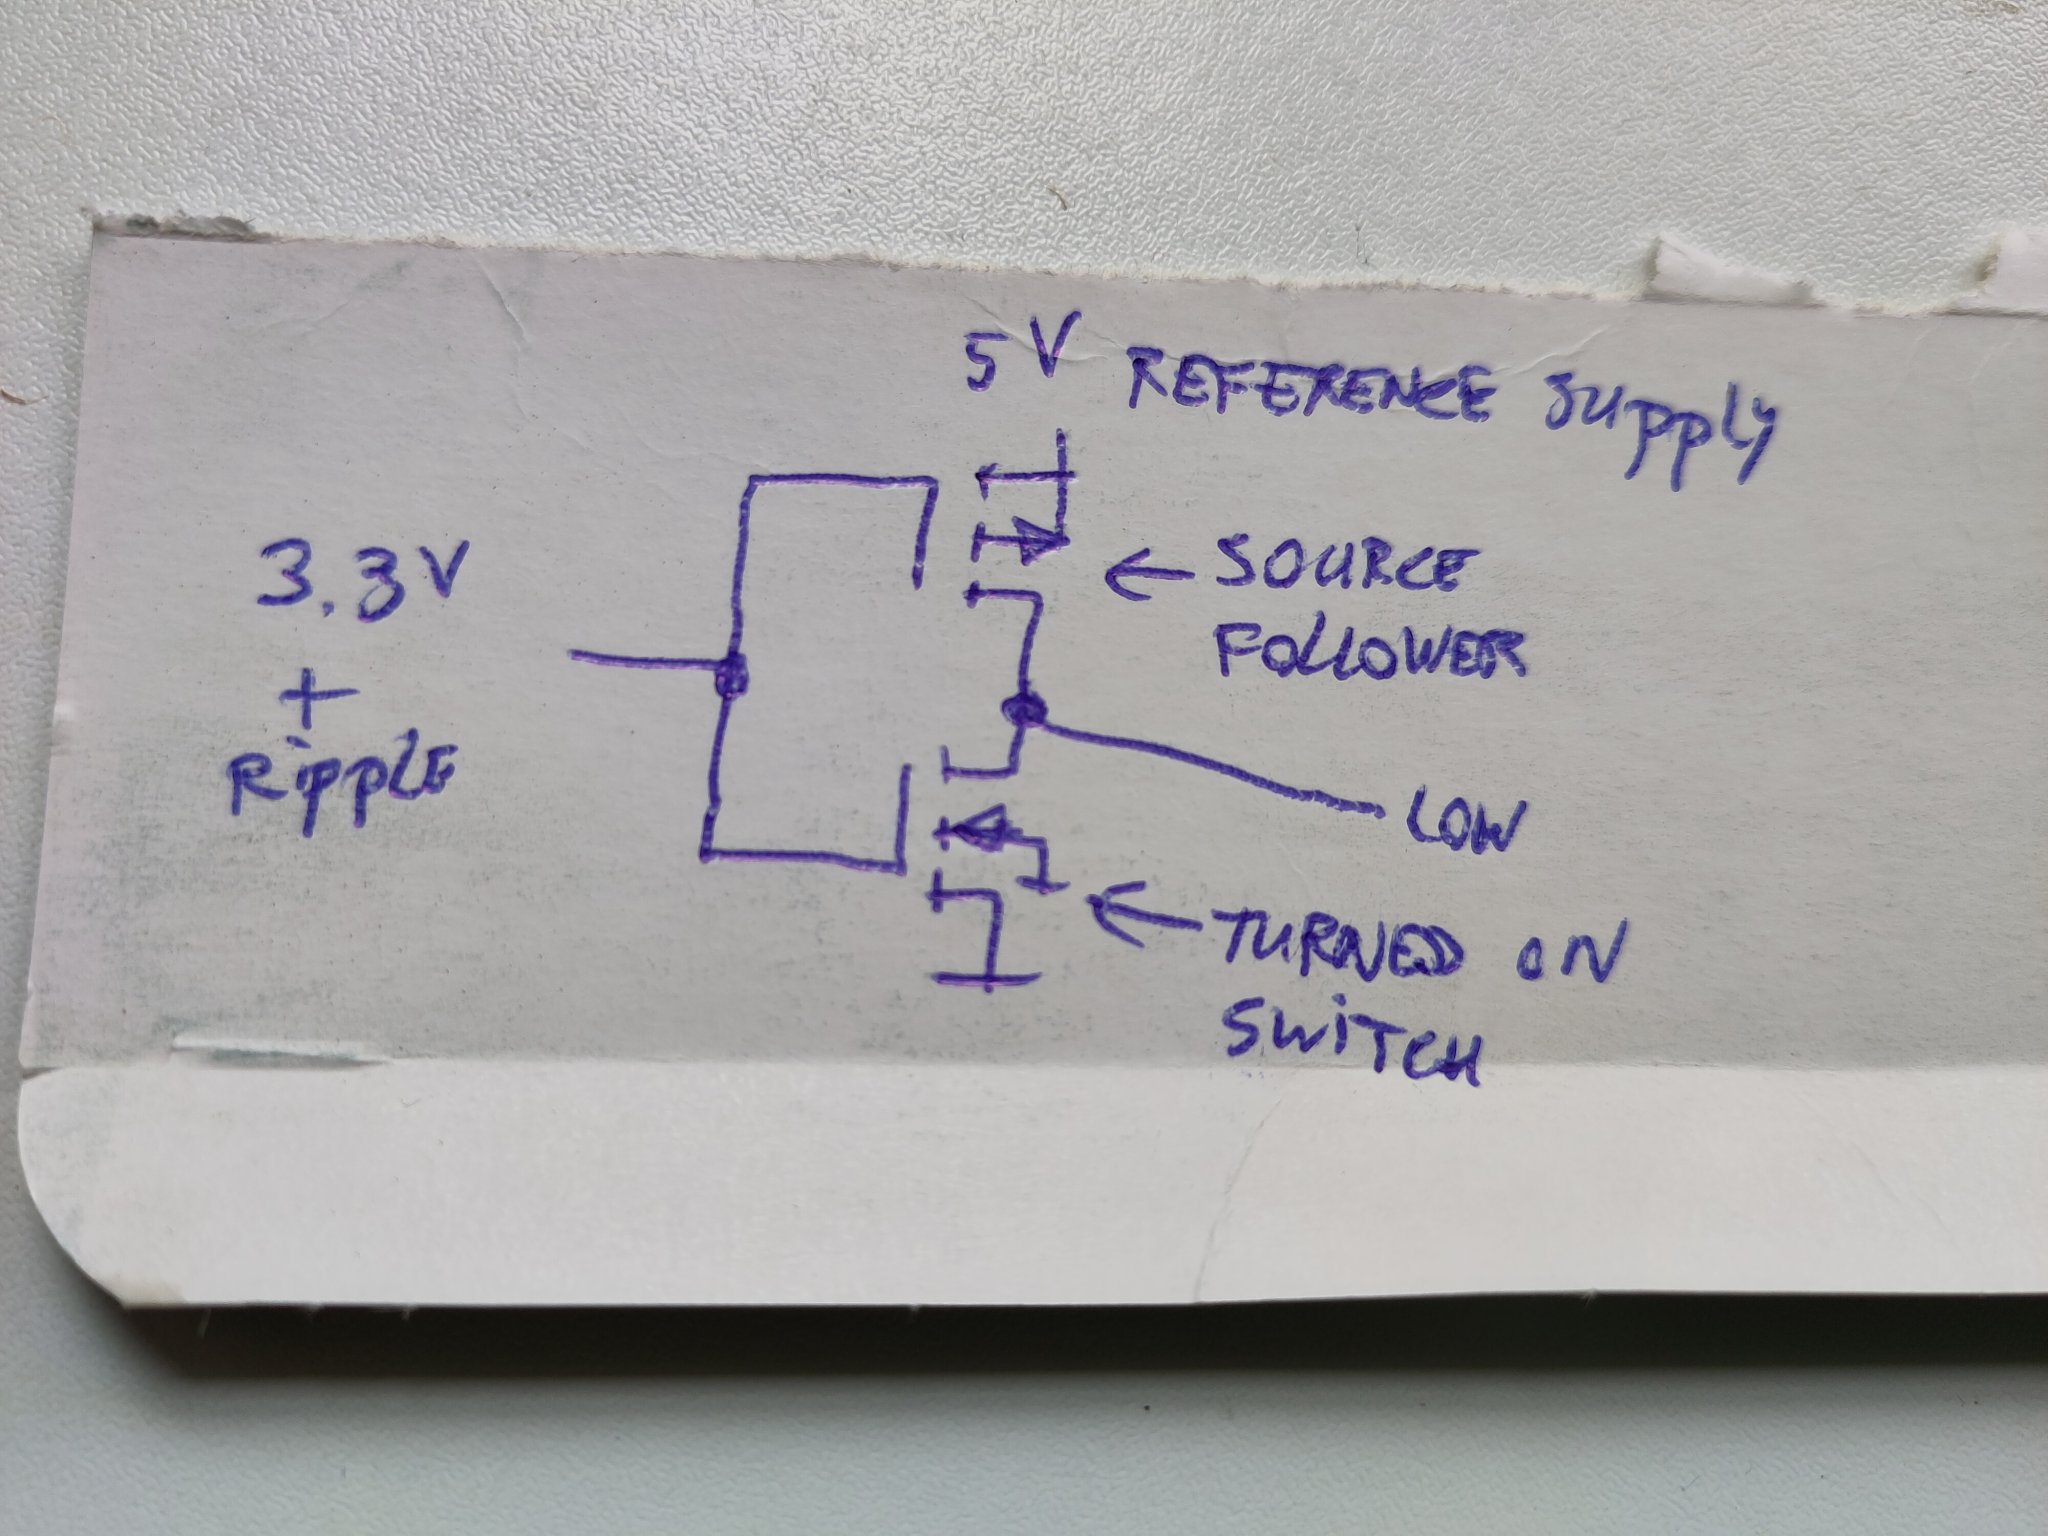 5V REFERENCE Supply
3.3V
+
Ripple
← SOURCE
FOLLOWER
LOW
← TURNED ON
SWiTCH